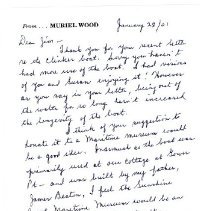 From... MURIEL WOOD
January 29/01
Dear Jim -
Thank you for your recent letter
re the clinker boat. Sorry you haven't
had more use of the boat. I had visions
of you and Susan enjoying it! However
as you say in your letter, being out of
the water for so long hasn't increased
the longevity of the boat.
I think of your suggestion to
donate it to a Maritime museum would
be a good idea. Inasmuch as the boat was
previously used at our cottage at Gower
Pt. - and was built by my father,
James Beatin, I feel the Sunshine
Coast Maritime Museum would be an